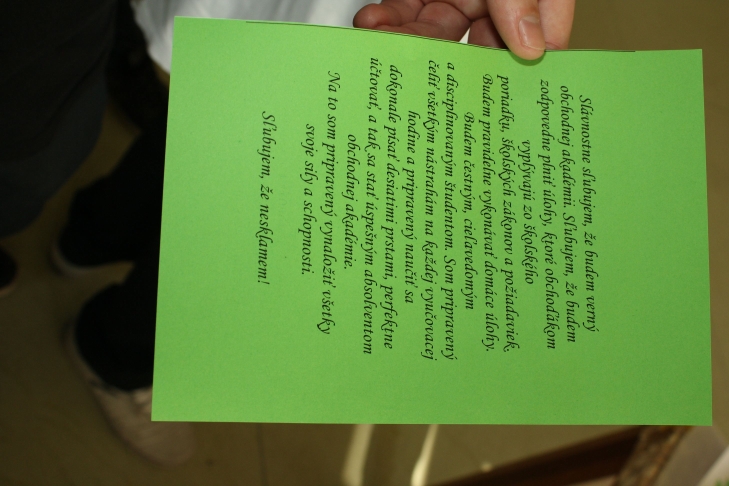 Slávnostne sľubujem, že budem verný
obchodnej akadémii. Sľubujem, že budem
zodpovedne plniť úlohy, ktoré obchoďákom
vyplývajú zo školského
poriadku, školských zákonov a požiadaviek.
Budem pravidelne vykonávať domáce úlohy.
Budem čestným, cieľavedomým
a disciplinovaným študentom. Som pripravený
čeliť všetkým nástrahám na každej vyučovacej
hodine a pripravený naučiť sa
dokonale písať desiatimi prstami, perfektne
účtovať, a tak sa stať úspešným absolventom
obchodnej akadémie.
Na to som pripravený vynaložiť všetky
svoje sily a schopnosti.
Sľubujem, že nesklamem!